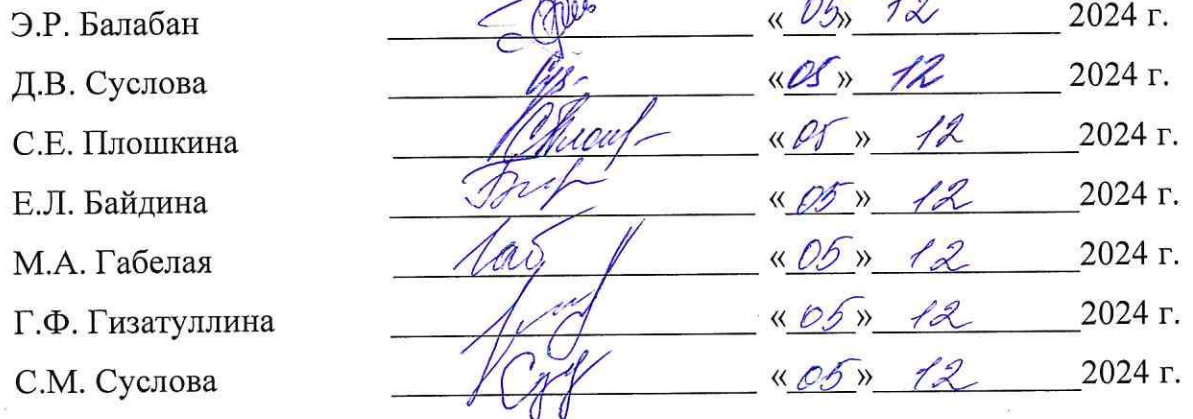 Э.Р. Балабан « 05 » 12 2024 г.
Д.В. Суслова « 05 » 12 2024 г.
С.Е. Плошкина « 05 » 12 2024 г.
Е.Л. Байдина « 05 » 12 2024 г.
М.А. Габелая « 05 » 12 2024 г.
Г.Ф. Гизатуллина « 05 » 12 2024 г.
С.М. Суслова « 05 » 12 2024 г.